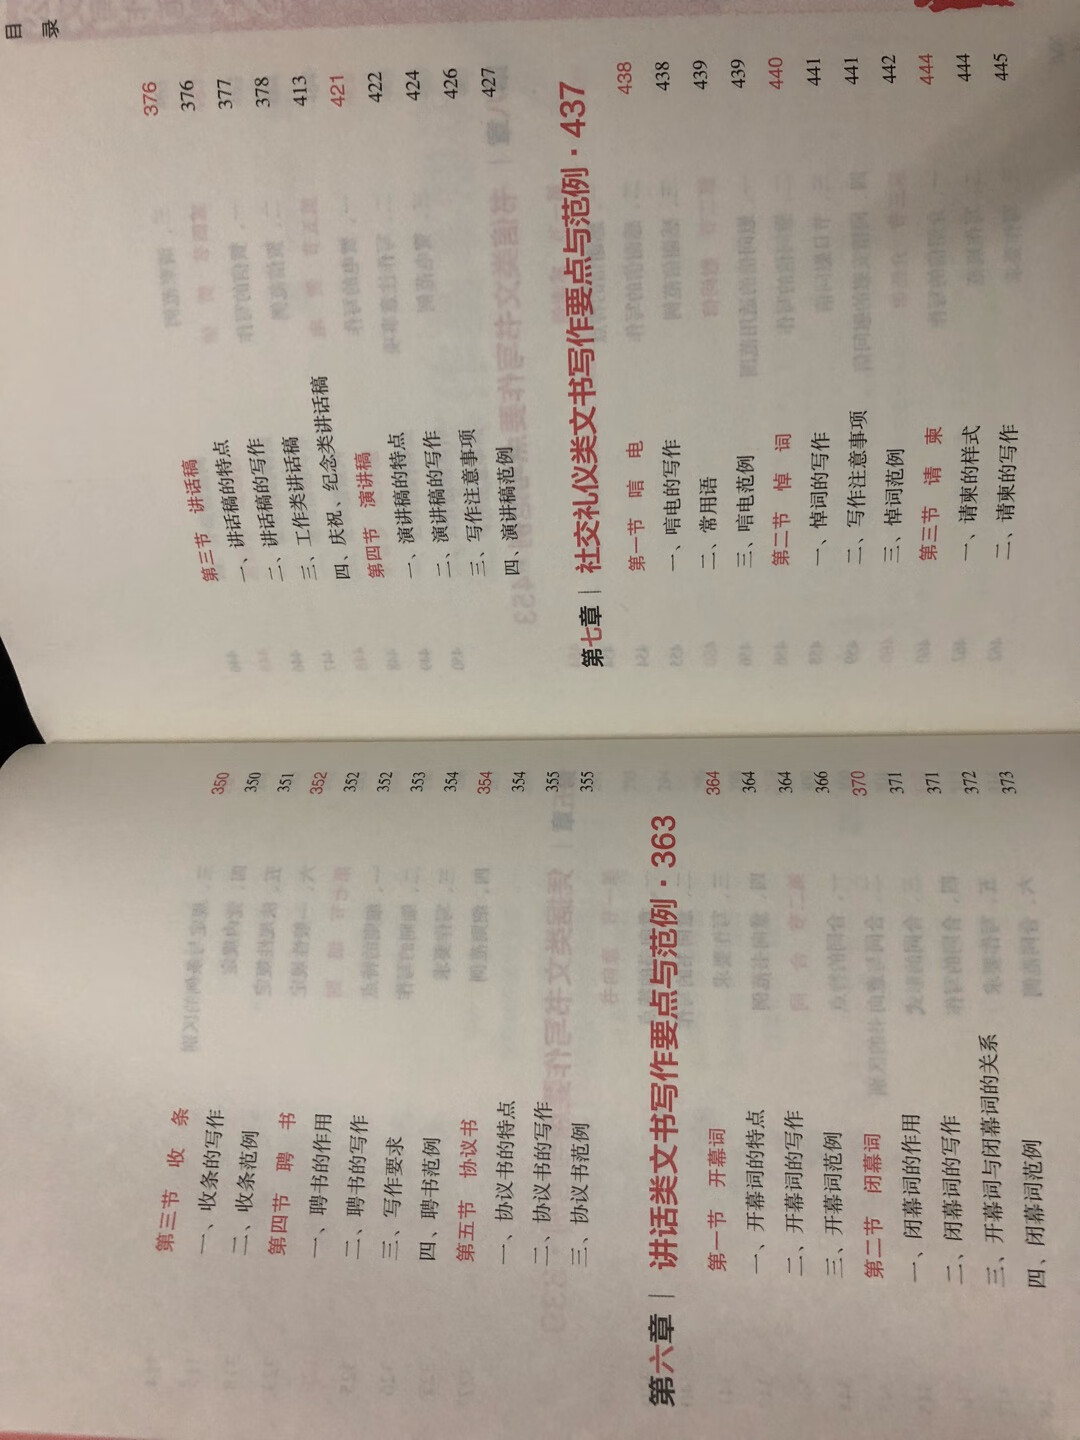 第三节 收 条 350
一、收条的写作 350
二、收条范例 351
第四节 聘 书 352
一、聘书的作用 352
二、聘书的写作 352
三、写作要求 353
四、聘书范例 354
第五节 协议书 354
一、协议书的特点 354
二、协议书的写作 355
三、协议书范例 355
第六章 | 讲话类文书写作要点与范例·363
第一节 开幕词 364
一、开幕词的特点 364
二、开幕词的写作 364
三、开幕词范例 366
第二节 闭幕词 370
一、闭幕词的作用 371
二、闭幕词的写作 371
三、开幕词与闭幕词的关系 372
四、闭幕词范例 373
目 录
第三节 讲话稿 376
一、讲话稿的特点 376
二、讲话稿的写作 377
三、工作类讲话稿 378
四、庆祝、纪念类讲话稿 413
第四节 演讲稿 421
一、演讲稿的特点 422
二、演讲稿的写作 424
三、写作注意事项 426
四、演讲稿范例 427
第七章 | 社交礼仪类文书写作要点与范例·437
第一节 唁 电 438
一、唁电的写作 438
二、常用语 439
三、唁电范例 439
第二节 悼 词 440
一、悼词的写作 441
二、写作注意事项 441
三、悼词范例 442
第三节 请 柬 444
一、请柬的样式 444
二、请柬的写作 445